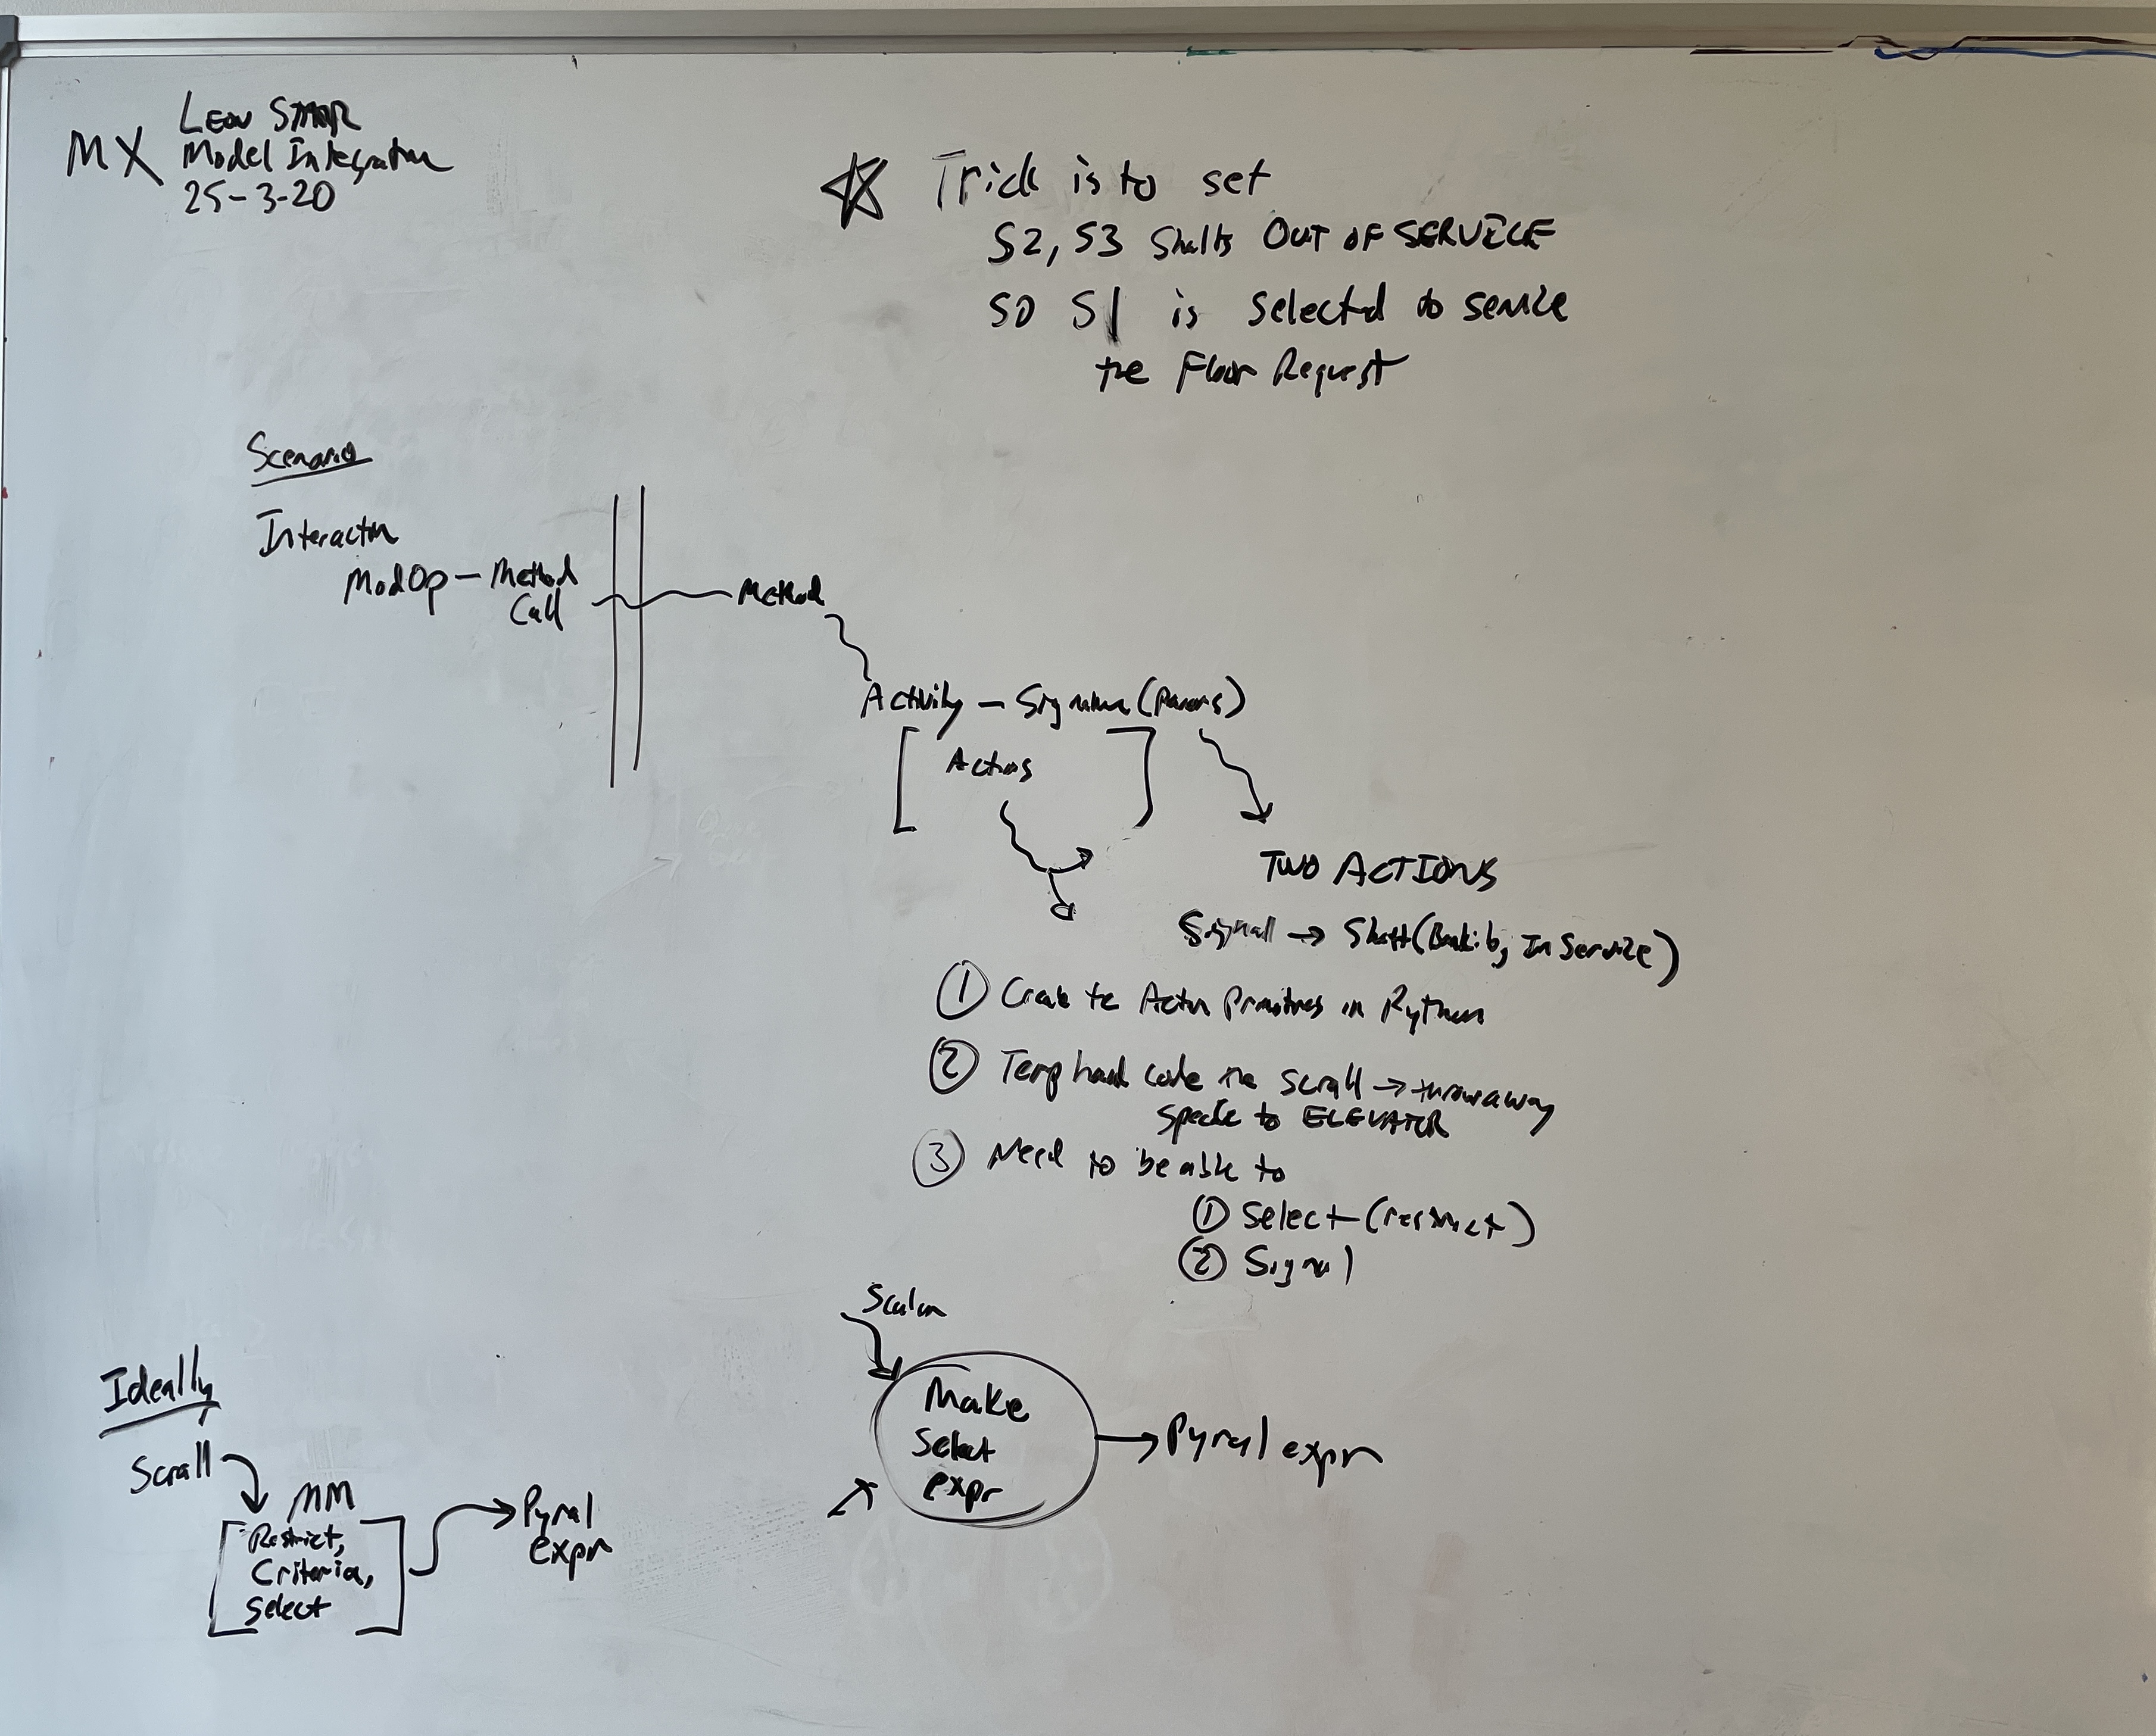 MX
Leon Starr
Model Integration
25-3-20
Trick is to set
S2, S3 Shafts OUT OF SERVICE
so S1 is selected to service
the Floor Request
Scenario
Interaction
ModOp – Method
Call
Method
Activity – Signature (Params)
Actions
TWO ACTIONS
Signal → Shaft (Bank:b, In Service)
① Create the Action Primitives in Python
② Temp hard code the scrall → throwaway
specific to ELEVATOR
③ Need to be able to
① Select (restrict)
② Signal
Make
Select
expr
→ Pyral expr
Ideally
Scrall
MM
Restrict,
Criteria,
Select
Pyral
expr